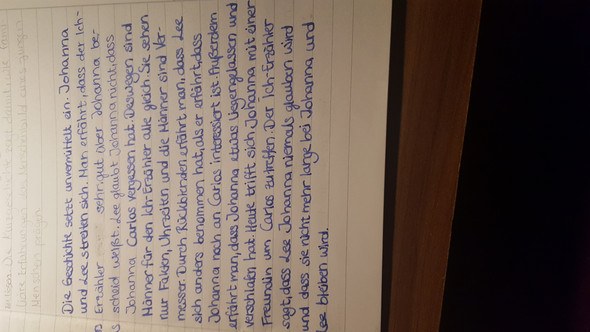 Menschen prägen.
Die Geschichte setzt unvermittelt ein. Johanna
und Lee streiten sich. Man erfährt, dass der Ich-
Erzähler sehr gut über Johanna be-
scheid weißt. Lee glaubt Johanna nicht, dass
Johanna Carlos vergessen hat. Deswegen sind
Männer für den Ich-Erzähler alle gleich. Sie sehen
nur Fakten, Uhrzeiten und die Männer sind Ver-
messer. Durch Rückblenden erfährt man, dass Lee
sich anders benommen hat, als er erfährt, dass
Johanna noch an Carlos interessiert ist. Außerdem
erfährt man, dass Johanna etwas liegengelassen und
verschlafen hat. Heute trifft sich Johanna mit einer
Freundin um Carlos zu treffen. Der Ich-Erzähler
sagt, dass Lee Johanna niemals glauben wird
und dass sie nicht mehr lange bei Johanna und
Lee bleiben wird.